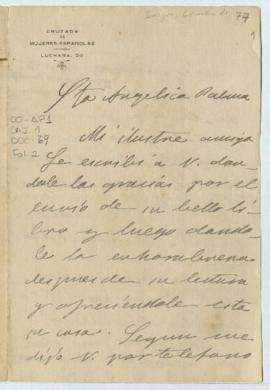 77
CRUZADA
DE
MUJERES ESPAÑOLAS
LUCHANA, 20
Sta Angelica Palma
OO-AP1
CAJ. 1
DOC-69
Fol 2
Mi ilustre amiga
Le escribí a V. dan-
dole las gracias por el
envio de su bello li-
bro y luego dando-
le la enhorabuena
despues de su lectura
y ofreciéndole esta
su casa. Segun me
dijo V. por telefono